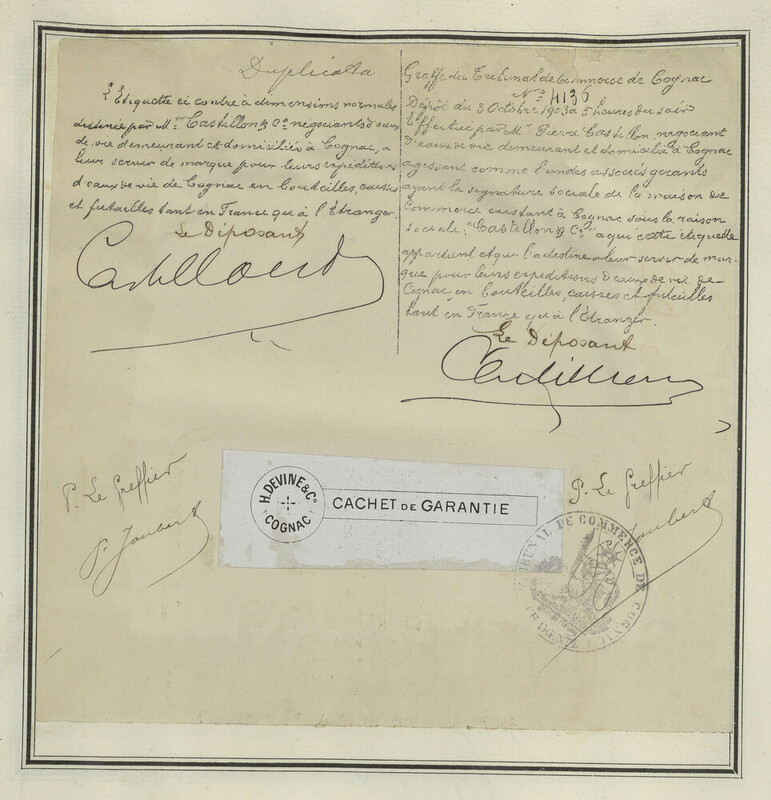 Duplicata
L'Etiquette ci contre à dimensions normales
destinée par Mrs Castillon & Co négociants d'eaux
de vie demeurant et domiciliés à Cognac, a
leur servir de marque pour leurs expéditions
d'eaux de vie de Cognac en bouteilles, caisses
et futailles tant en France qu'à l'Etranger.
Le Déposant
Castillon & Co
Greffe du Tribunal de Commerce de Cognac
No 4136
Dépôt du 3 Octobre 1903 à 5 heures du soir
Effectué par Mr Pierre Castillon, négociant
d'eaux de vie demeurant et domicilié à Cognac
agissant comme l'un des associés gérants
ayant la signature sociale de la maison de
Commerce existant à Cognac sous la raison
sociale: "Castillon & Co" a qui cette étiquette
appartient et qui l'a destinée a leur servir de mar-
que pour leurs expéditions d'eaux de vie de
Cognac en bouteilles, caisses et futailles
tant en France qu'à l'Etranger.
Le Déposant
P. Le Greffier
P. Joubert
H. DEVINE & Co
COGNAC
CACHET DE GARANTIE
P. Le Greffier
Joubert
TRIBUNAL DE COMMERCE DE COGNAC